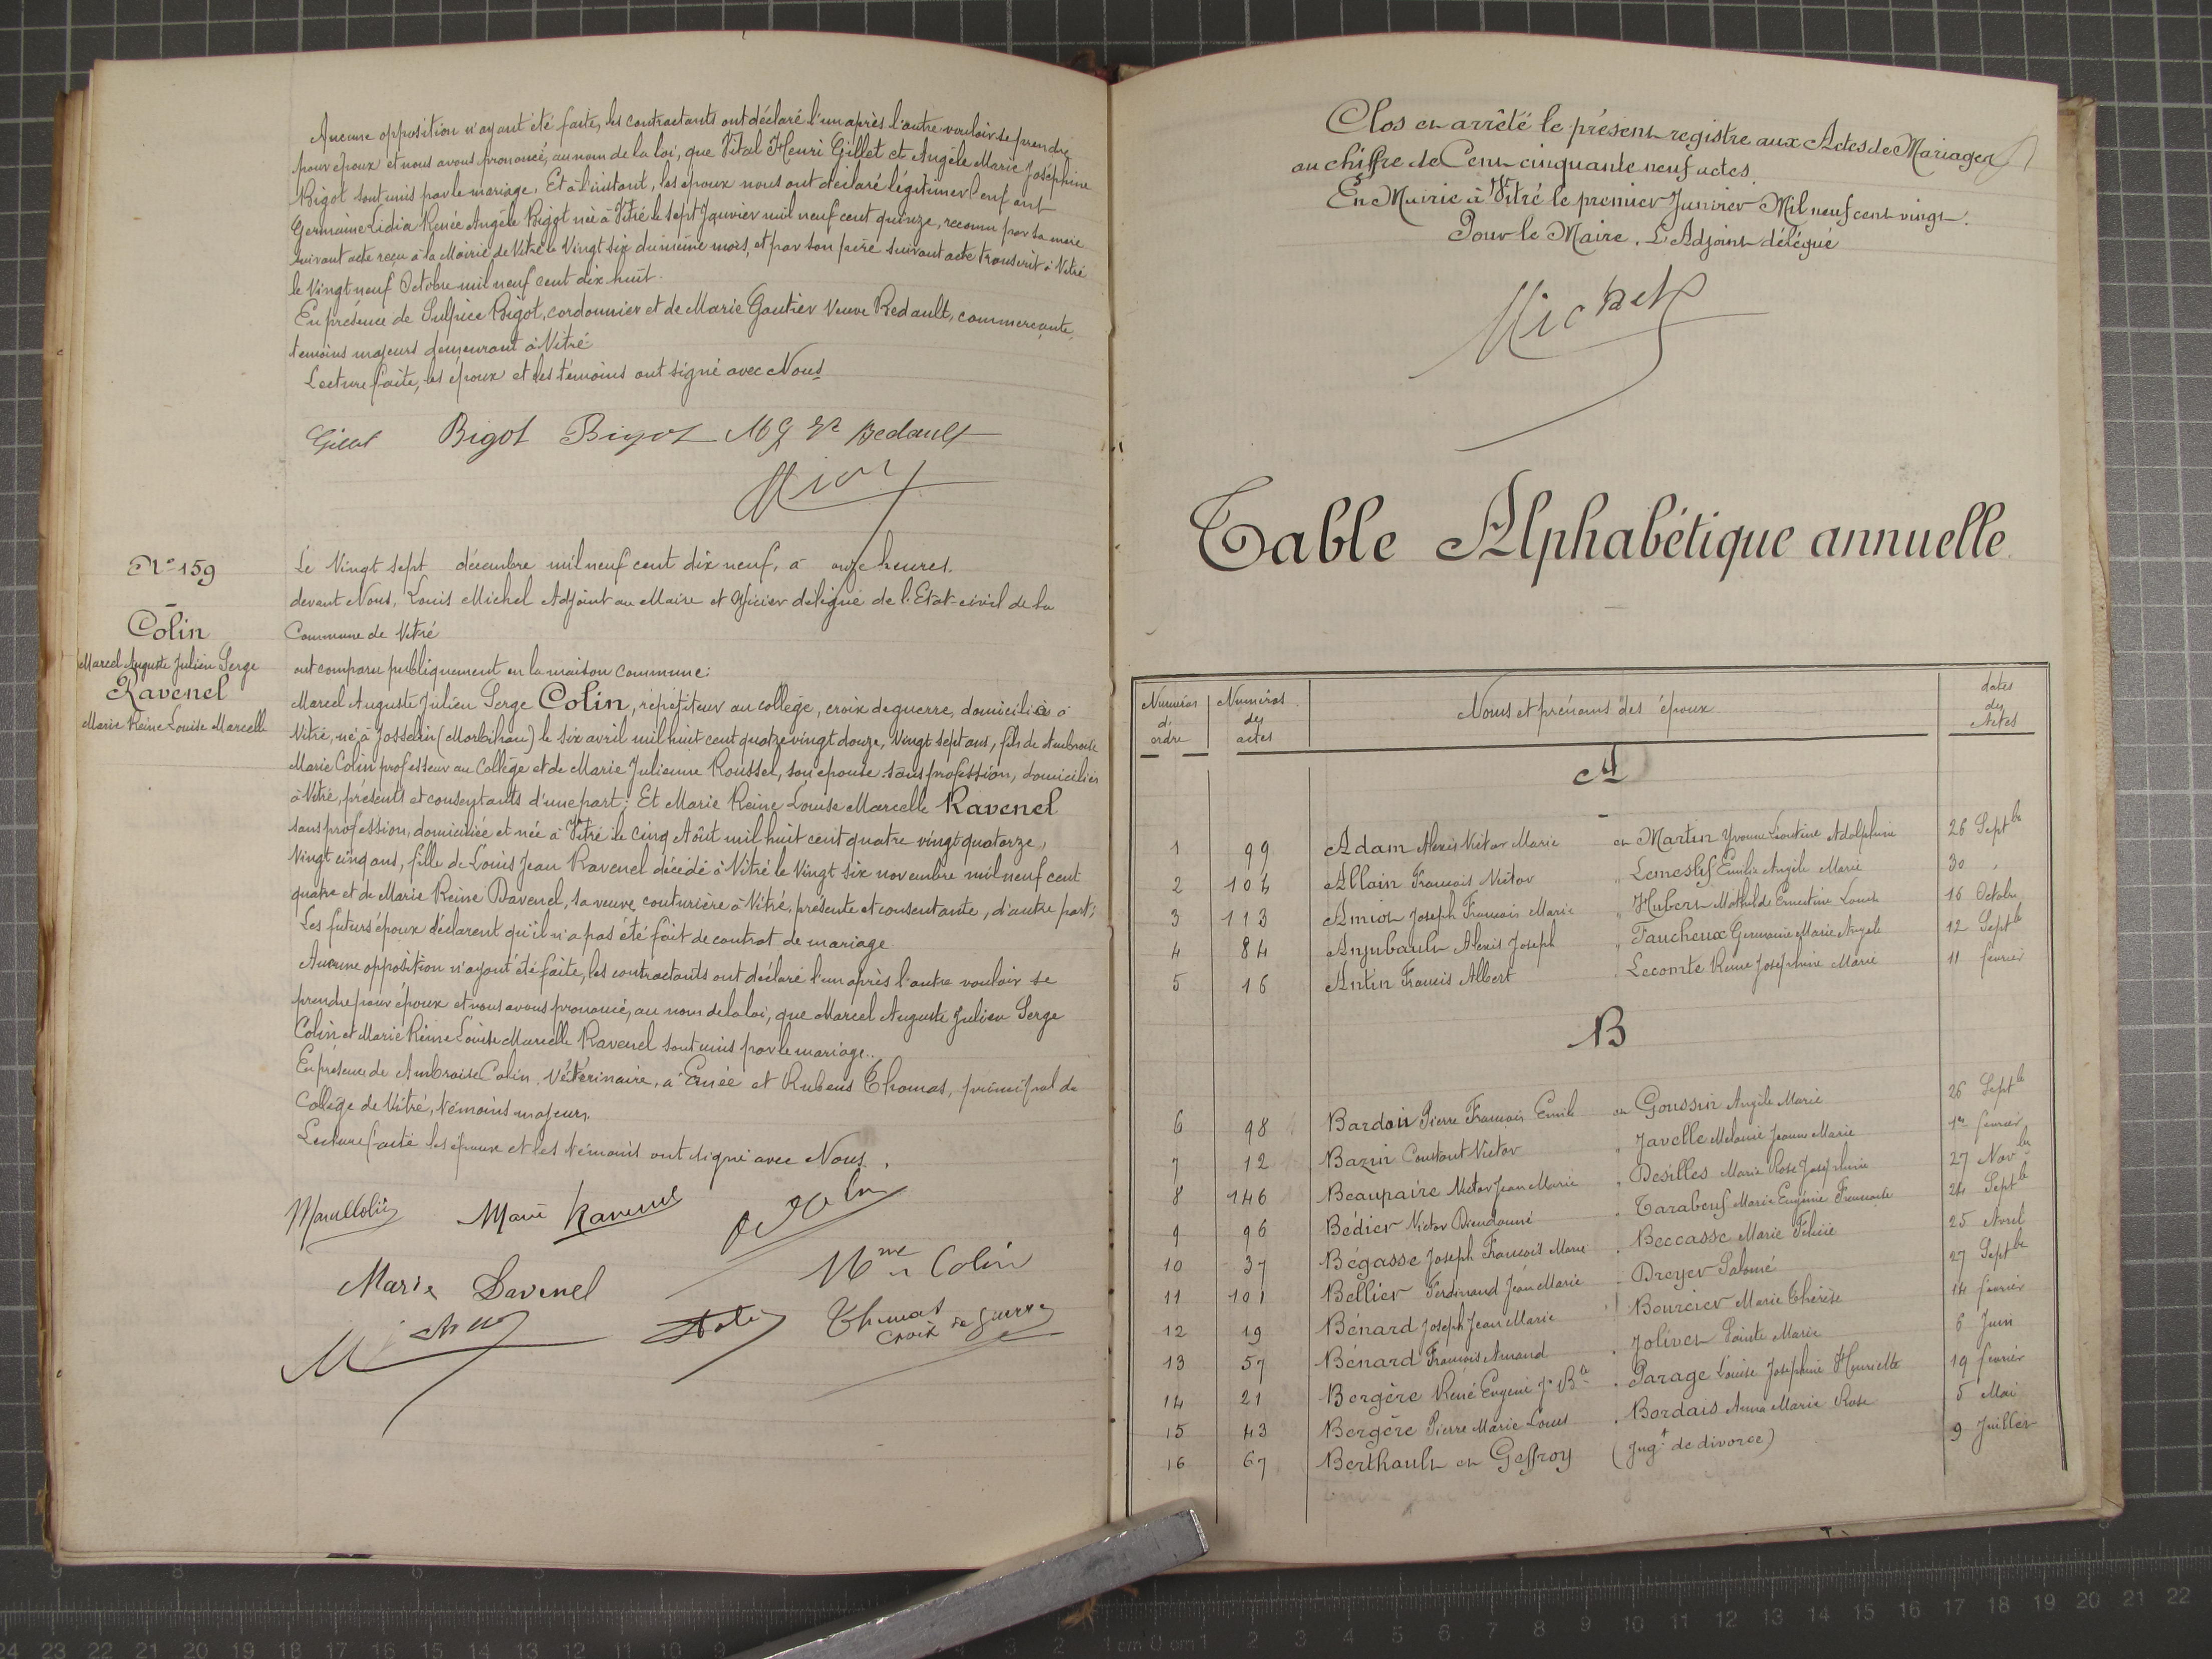 Aucune opposition n'ayant été faite, les contractants ont déclaré l'un après l'autre vouloir se prendre
pour époux et nous avons prononcé, au nom de la loi, que Vital Henri Gillet et Angèle Marie Joséphine
Bigot sont unis par le mariage. Et à l'instant, les époux nous ont déclaré légitimer l'enfant
Germaine Lidia Renée Angèle Bigot née à Vitré le sept Janvier mil neuf cent quinze, reconnu par sa mère
suivant acte reçu à la Mairie de Vitré le Vingt six du même mois, et par son père suivant acte transcrit à Vitré
le Vingt neuf Octobre mil neuf cent dix huit.
En présence de Sulpice Bigot, cordonnier et de Marie Gautier Veuve Bedault, commerçante,
témoins majeurs demeurant à Vitré
Lecture faite, les époux et les témoins ont signé avec Nous
Gillet Bigot Bigot Bedault
N° 159
Colin
Marcel Auguste Julien Serge
Ravenel
Marie Reine Louise Marcelle
Le Vingt sept décembre mil neuf cent dix neuf, à onze heures.
devant Nous, Louis Michel Adjoint au Maire et Officier délégué de l'Etat-civil de la
Commune de Vitré
ont comparu publiquement en la maison commune:
Marcel Auguste Julien Serge Colin, répétiteur au collège, croix de guerre, domicilié à
Vitré, né à Josselin (Morbihan) le six avril mil huit cent quatre vingt douze, Vingt sept ans, fils de Ambroise
Marie Colin professeur au Collège et de Marie Julienne Roussel, son épouse sans profession, domiciliés
à Vitré, présents et consentants d'une part; Et Marie Reine Louise Marcelle Ravenel
sans profession, domiciliée et née à Vitré le cinq Août mil huit cent quatre vingt quatorze,
Vingt cinq ans, fille de Louis Jean Ravenel décédé à Vitré le Vingt six novembre mil neuf cent
quatre et de Marie Reine Davenel, sa veuve, couturière à Vitré, présente et consentante, d'autre part;
Les futurs époux déclarent qu'il n'a pas été fait de contrat de mariage
Aucune opposition n'ayant été faite, les contractants ont déclaré l'un après l'autre vouloir se
prendre pour époux et nous avons prononcé, au nom de la loi, que Marcel Auguste Julien Serge
Colin et Marie Reine Louise Marcelle Ravenel sont unis par le mariage.
En présence de Ambroise Colin, Vétérinaire, à Ernée et Rubens Thomas, principal du
Collège de Vitré, témoins majeurs.
Lecture faite les époux et les témoins ont signé avec Nous.
Marcel Colin Marie Ravenel
Marie Davenel Mme Colin
Michel Thomas
croix de guerre
Clos et arrêté le présent registre aux Actes de Mariages
au chiffre de Cent cinquante neuf actes.
En Mairie à Vitré le premier Janvier Mil neuf cent vingt.
Pour le Maire, L'Adjoint délégué
Michel
Table Alphabétique annuelle
Numéros d'ordre Numéros des actes Noms et prénoms des époux dates des Actes
A
1 99 Adam Alexis Victor Marie et Martin Yvonne Léontine Adolphine 26 Septbre
2 104 Allain François Victor " Lemesle Emilie Angèle Marie 30 "
3 113 Amiot Joseph François Marie " Hubert Mathilde Ernestine Louise 16 Octobre
4 84 Anjubault Alexis Joseph " Faucheux Germaine Marie Angèle 12 Septbre
5 16 Antin Francis Albert " Lecomte Reine Joséphine Marie 11 février
B
6 98 Bardou Pierre François Emile et Goussin Angèle Marie 26 Septbre
7 12 Bazin Constant Victor " Javelle Mélanie Jeanne Marie 1er février
8 146 Beaupaire Victor Jean Marie " Desilles Marie Rose Joséphine 27 Novbre
9 96 Bédier Victor Dieudonné " Tarabeuf Marie Eugénie Françoise 24 Septbre
10 37 Bégasse Joseph François Marie " Beccasse Marie Félicie 25 Avril
11 101 Bellier Ferdinand Jean Marie " Dreyer Salomé 27 Septbre
12 19 Bénard Joseph Jean Marie " Bourcier Marie Thérèse 14 février
13 57 Bénard François Amand " Jolivet Sainte Marie 6 Juin
14 21 Bergère René Eugène Jn Bte " Parage Louise Joséphine Henriette 19 février
15 43 Bergère Pierre Marie Louis " Bordais Anna Marie Rose 5 Mai
16 67 Berthault et Geffroy (Jugt de divorce) 9 Juillet
24 23 22 21 20 19 18 17 16 15 14 13 12 11 10 9
3 2 1 cm 0 cm 1 2 3 4 5 6 7 8 9 10 11 12 13 14 15 16 17 18 19 20 21 22